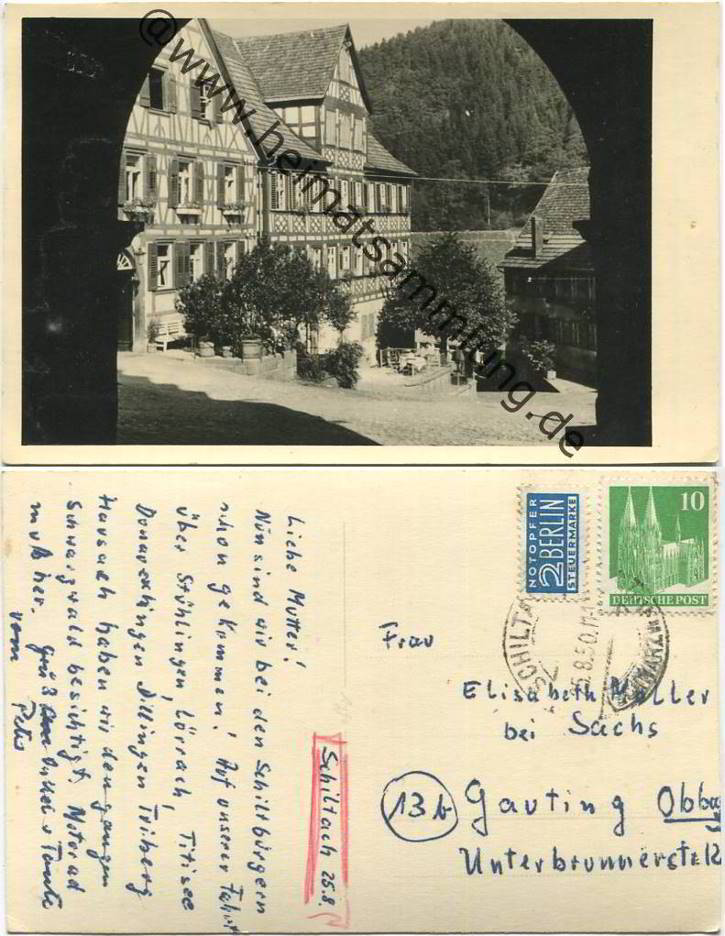 @www.heimatsammlung.de
Liebe Mutter!
Nun sind wir bei den Schiltbürgern
schon gekommen! Auf unserer Fahrt
über Stühlingen, Lörrach, Titisee
Donaueschingen Villingen Triberg
Hausach haben wir den ganzen
Schwarzwald besichtigt, Motorad
muß her. Grüß Onkel u Tante
vom Peter
Schiltach 25.8.
NOTOPFER
2 BERLIN
STEUERMARKE
10
DEUTSCHE POST
SCHILTA
5.8.50.11
Frau
Elisabeth Müller
bei Sachs
13b Gauting Obbay
Unterbrunnerstr. 12